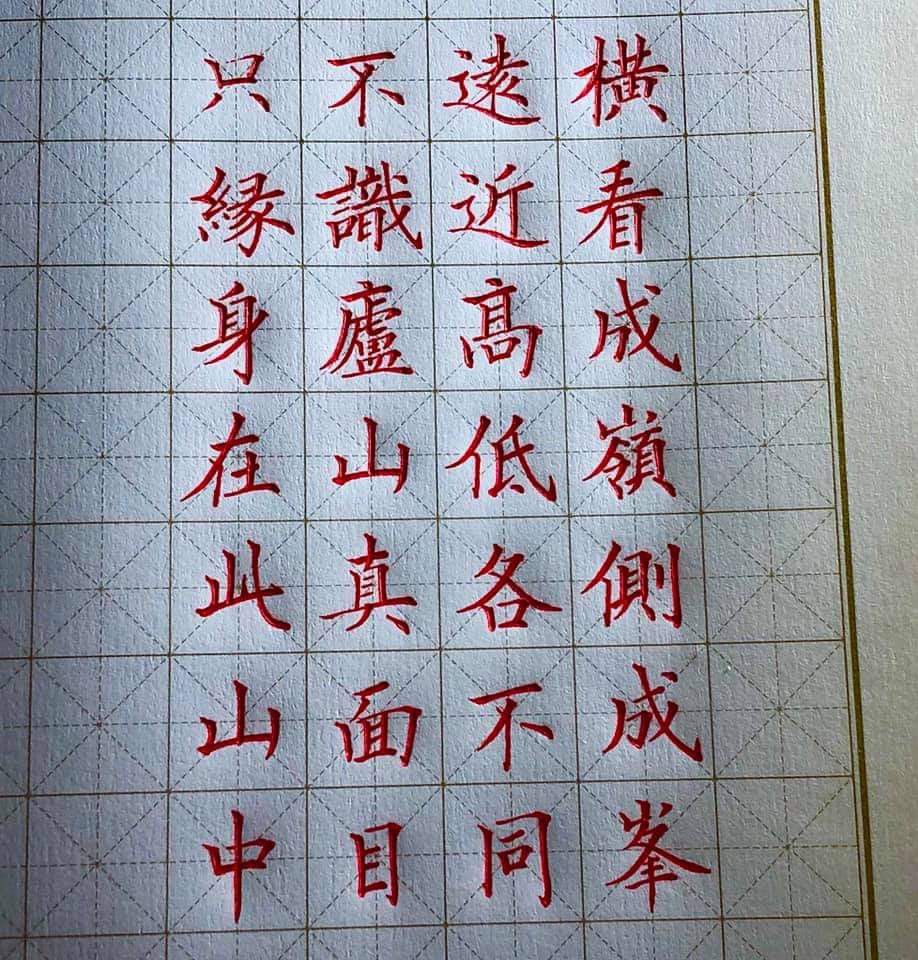 橫看成嶺側成峯
遠近高低各不同
不識廬山真面目
只緣身在此山中